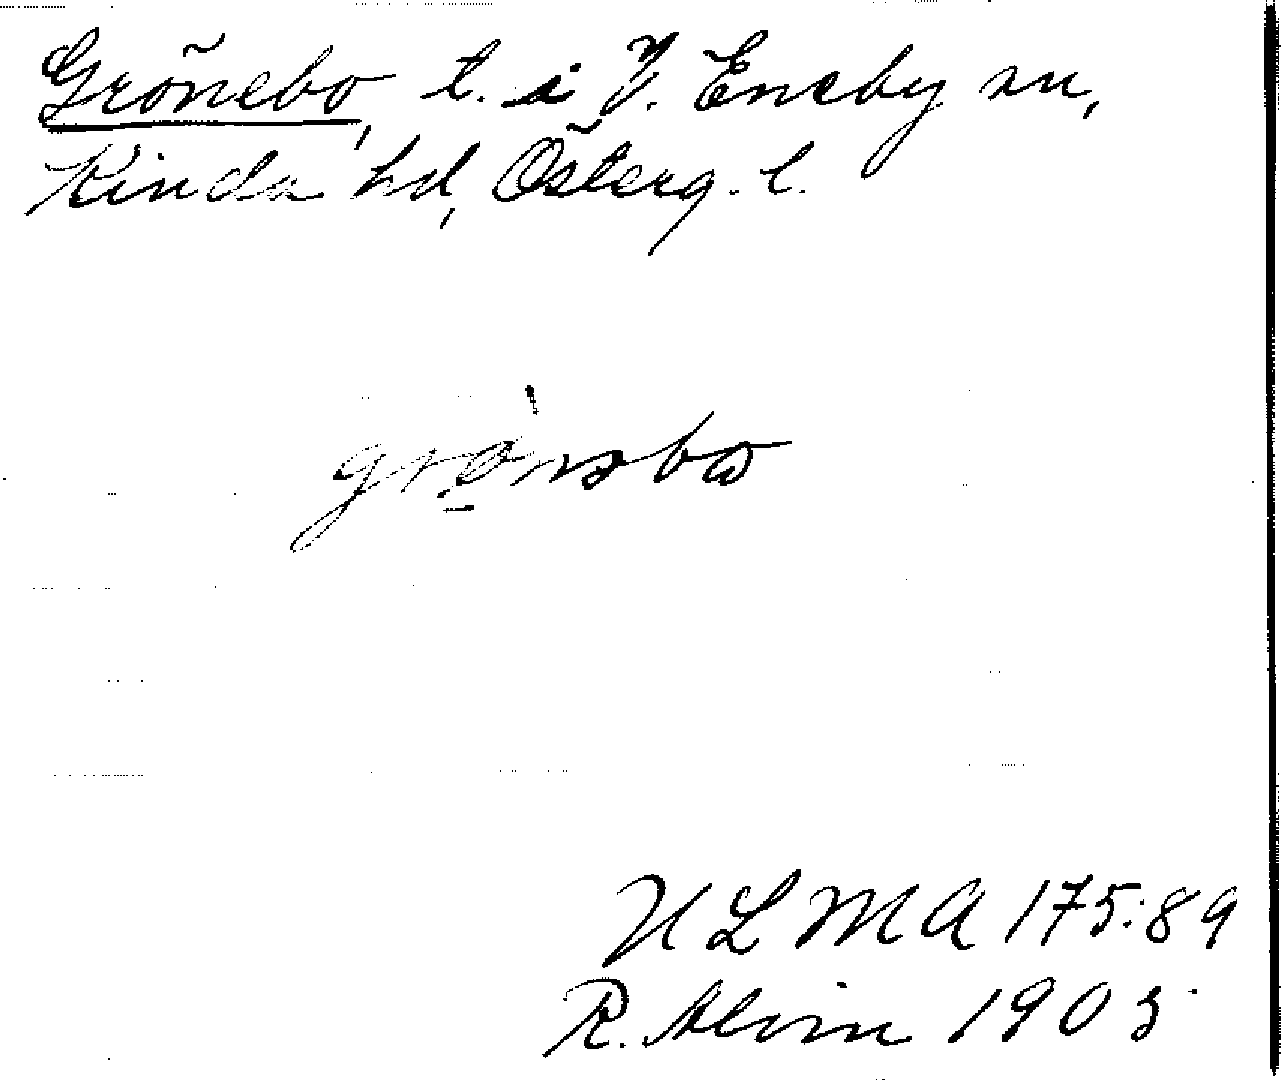 Grönebo, t. i V. Eneby sn,
Kinda hd, Österg. l.
grø̀nəbω
ULMA 175:89
R. Alvin 1905